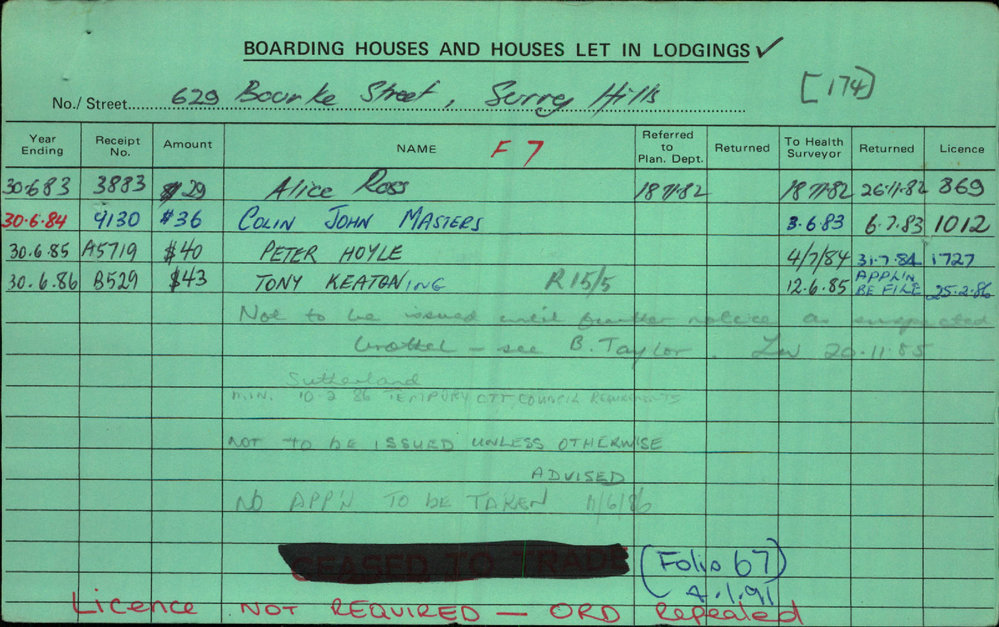 BOARDING HOUSES AND HOUSES LET IN LODGINGS ✓
No./Street 629 Bourke Street, Surry Hills [174]
Year Ending Receipt No. Amount NAME F7 Referred to Plan. Dept. Returned To Health Surveyor Returned Licence
30.6.83 3883 $29 Alice Ross 18/11/82 18/11/82 26.11.82 869
30.6.84 9130 $36 COLIN JOHN MASTERS 3.6.83 6.7.83 1012
30.6.85 A5719 $40 PETER HOYLE 4/7/84 31.7.84 1727
30.6.86 B529 $43 TONY KEATONING R15/5 12.6.85 APPL'N RE FILE 25.2.86
Not to be issued until further notice as suspected
brothel – see B. Taylor. 20.11.85
Sutherland
MIN. 10-2 86 COUNCIL REQUIREMENTS
NOT TO BE ISSUED UNLESS OTHERWISE
ADVISED
NO APP'N TO BE TAKEN 11/6/86
CEASED TO TRADE (Folio 67)
4.1.91
Licence NOT REQUIRED – ORD Repealed